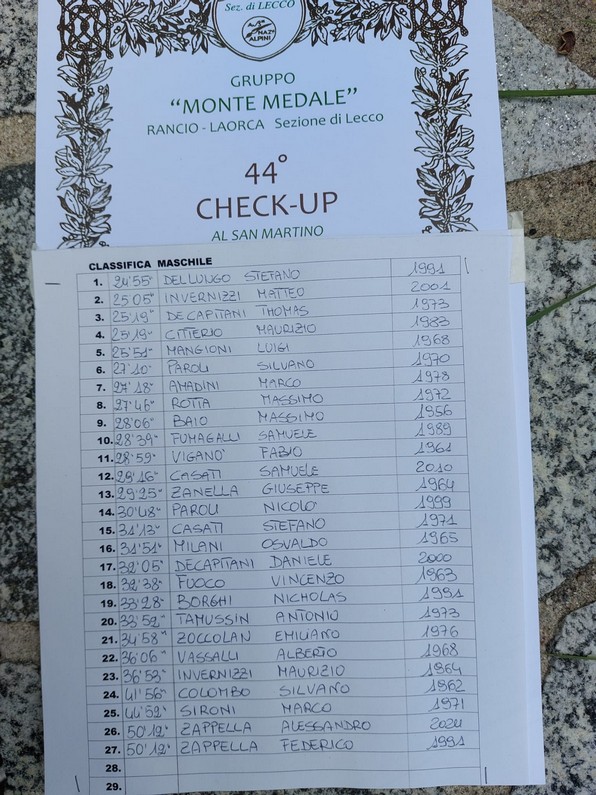 Sez. di LECCO
NAZ.
ALPINI
GRUPPO
“MONTE MEDALE”
RANCIO - LAORCA Sezione di Lecco
44°
CHECK-UP
AL SAN MARTINO
CLASSIFICA MASCHILE
1. 24'55" DELLUNGO STEFANO 1991
2. 25'05" INVERNIZZI MATTEO 2001
3. 25'19" DECAPITANI THOMAS 1973
4. 25'19" CITTERIO MAURIZIO 1983
5. 25'51" MANGIONI LUIGI 1968
6. 27'10" PAROLI SILVANO 1970
7. 27'18" AMADINI MARCO 1978
8. 27'46" ROTTA MASSIMO 1972
9. 28'06" BAIO MASSIMO 1956
10. 28'39" FUMAGALLI SAMUELE 1989
11. 28'59" VIGANO' FABIO 1961
12. 29'16" CASATI SAMUELE 2010
13. 29'25" ZANELLA GIUSEPPE 1964
14. 30'48" PAROLI NICOLO' 1999
15. 31'13" CASATI STEFANO 1971
16. 31'51" MILANI OSVALDO 1965
17. 32'05" DECAPITANI DANIELE 2000
18. 32'38" FUOCO VINCENZO 1963
19. 33'28" BORGHI NICHOLAS 1991
20. 33'52" TAMUSSIN ANTONIO 1973
21. 34'58" ZOCCOLAN EMILIANO 1976
22. 36'06" VASSALLI ALBERTO 1968
23. 36'53" INVERNIZZI MAURIZIO 1964
24. 41'56" COLOMBO SILVANO 1962
25. 44'52" SIRONI MARCO 1971
26. 50'12" ZAPPELLA ALESSANDRO 2021
27. 50'12" ZAPPELLA FEDERICO 1991
28.
29.